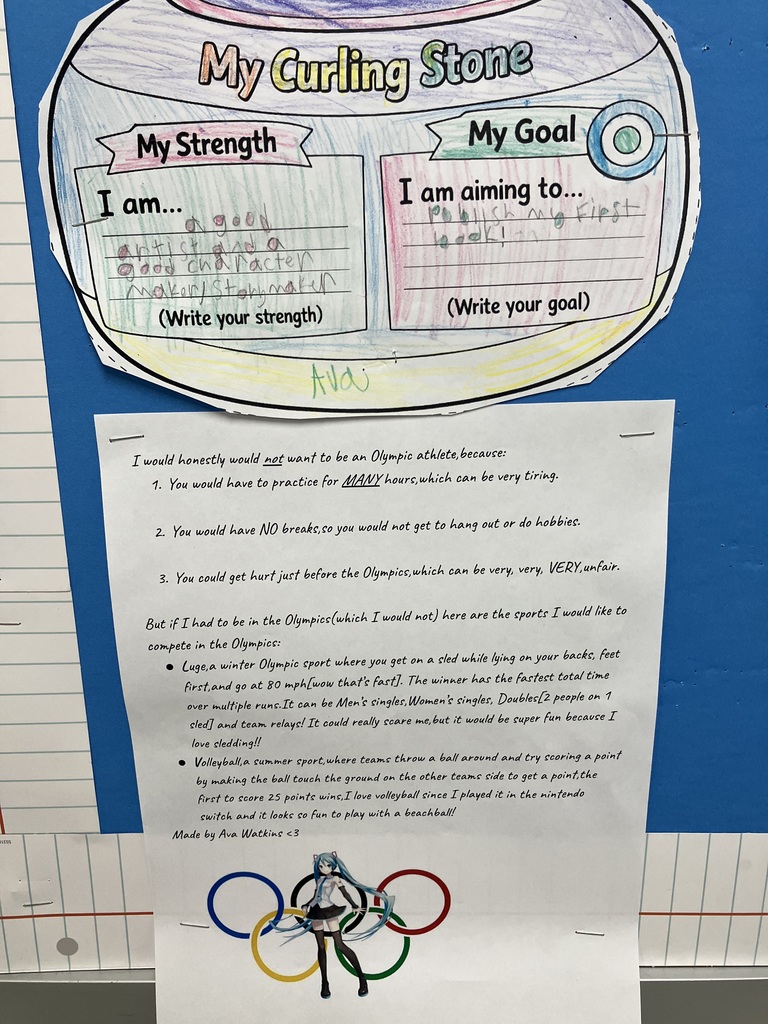 My Curling Stone
My Strength
I am...
a good
artist and a
good character
maker/storymaker
(Write your strength)
My Goal
I am aiming to...
publish my first
book!
(Write your goal)
Ava
I would honestly would not want to be an Olympic athlete,because:
1. You would have to practice for MANY hours,which can be very tiring.
2. You would have NO breaks,so you would not get to hang out or do hobbies.
3. You could get hurt just before the Olympics,which can be very, very, VERY,unfair.
But if I had to be in the Olympics(which I would not) here are the sports I would like to
compete in the Olympics:
● Luge,a winter Olympic sport where you get on a sled while lying on your backs, feet
first,and go at 80 mph[wow that's fast]. The winner has the fastest total time
over multiple runs.It can be Men's singles,Women's singles, Doubles[2 people on 1
sled] and team relays! It could really scare me,but it would be super fun because I
love sledding!!
● Volleyball,a summer sport,where teams throw a ball around and try scoring a point
by making the ball touch the ground on the other teams side to get a point,the
first to score 25 points wins,I love volleyball since I played it in the nintendo
switch and it looks so fun to play with a beachball!
Made by Ava Watkins <3